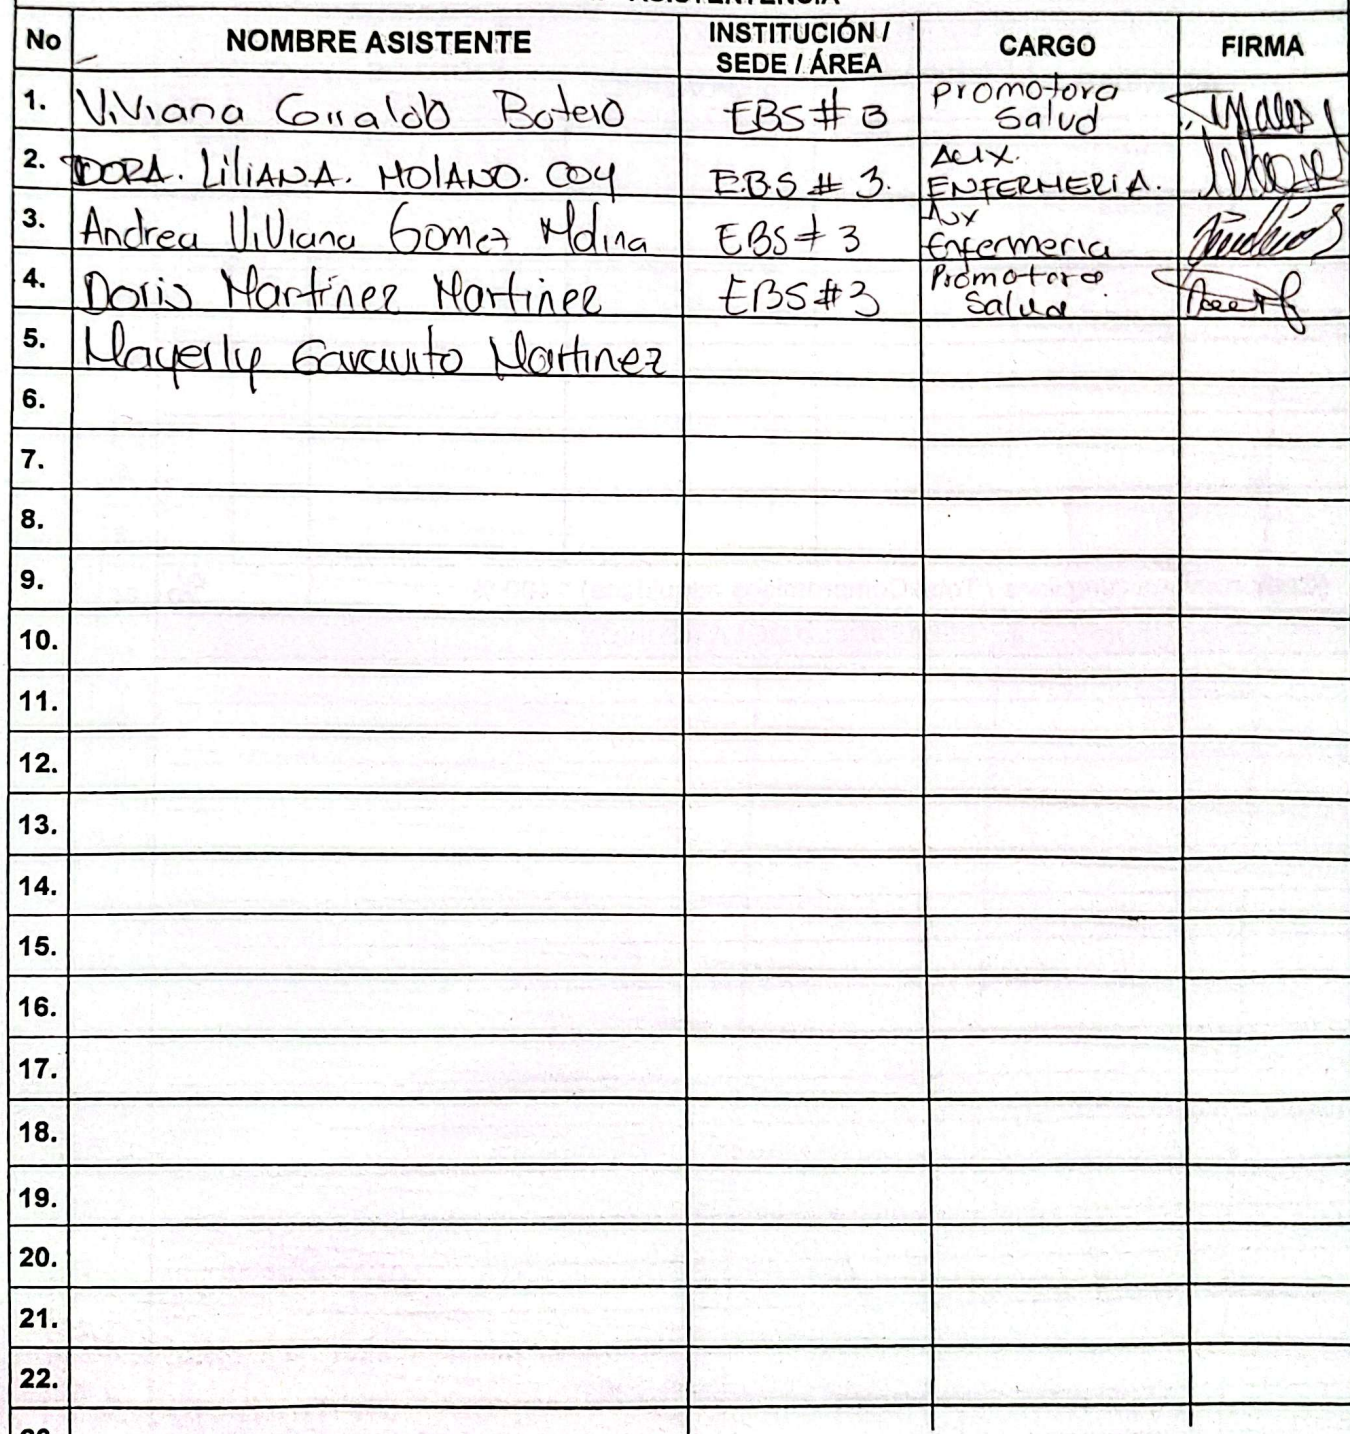 No NOMBRE ASISTENTE INSTITUCIÓN / SEDE / ÁREA CARGO FIRMA
1. Viviana Giraldo Botero EBS # 3 Promotora Salud
2. DORA. LiLiANA. MOLANO. COY E.B.S # 3. AUX. ENFERMERIA.
3. Andrea Viviana Gomez Molina EBS # 3 Aux Enfermeria
4. Doris Martinez Martinez EBS #3 Promotora Salud
5. Mayerly Garavito Martinez
6.
7.
8.
9.
10.
11.
12.
13.
14.
15.
16.
17.
18.
19.
20.
21.
22.